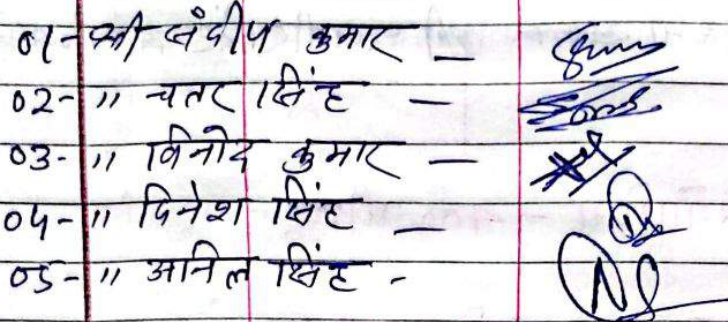 01- श्री संदीप कुमार -
02- " चतर सिंह -
03- " विनोद कुमार -
04- " दिनेश सिंह -
05- " अनिल सिंह -